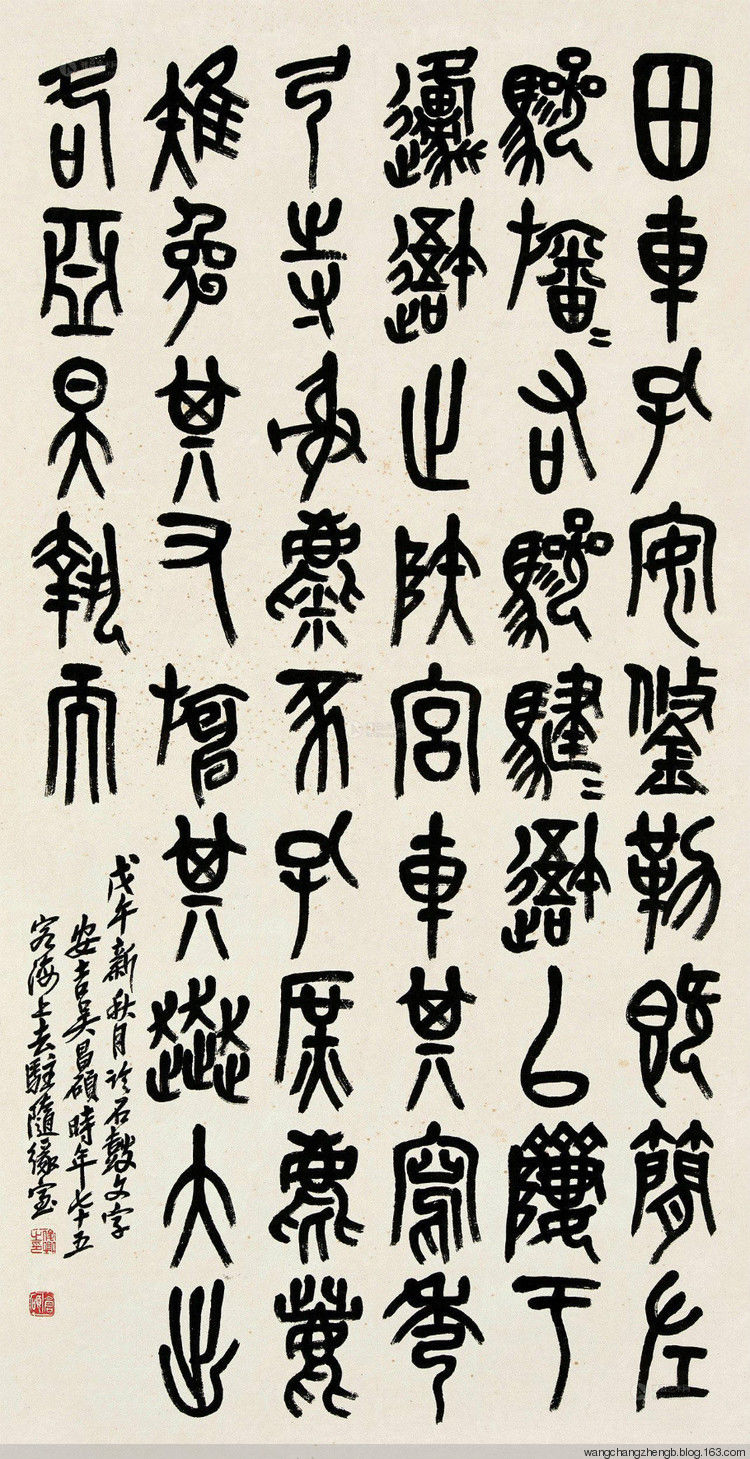 田車孔安鋚勒既簡左
驂旛=右驂騝=吾以隮于
邍吾止陕宮車其寫秀
弓寺射麋豕孔庶麀鹿
雉兔其又旃其大出
各亞昊執而
戊午新秋月臨石鼓文字
安吉吳昌碩時年七十五
客海上去駐隨緣室
wangchangzhengb.blog.163.com